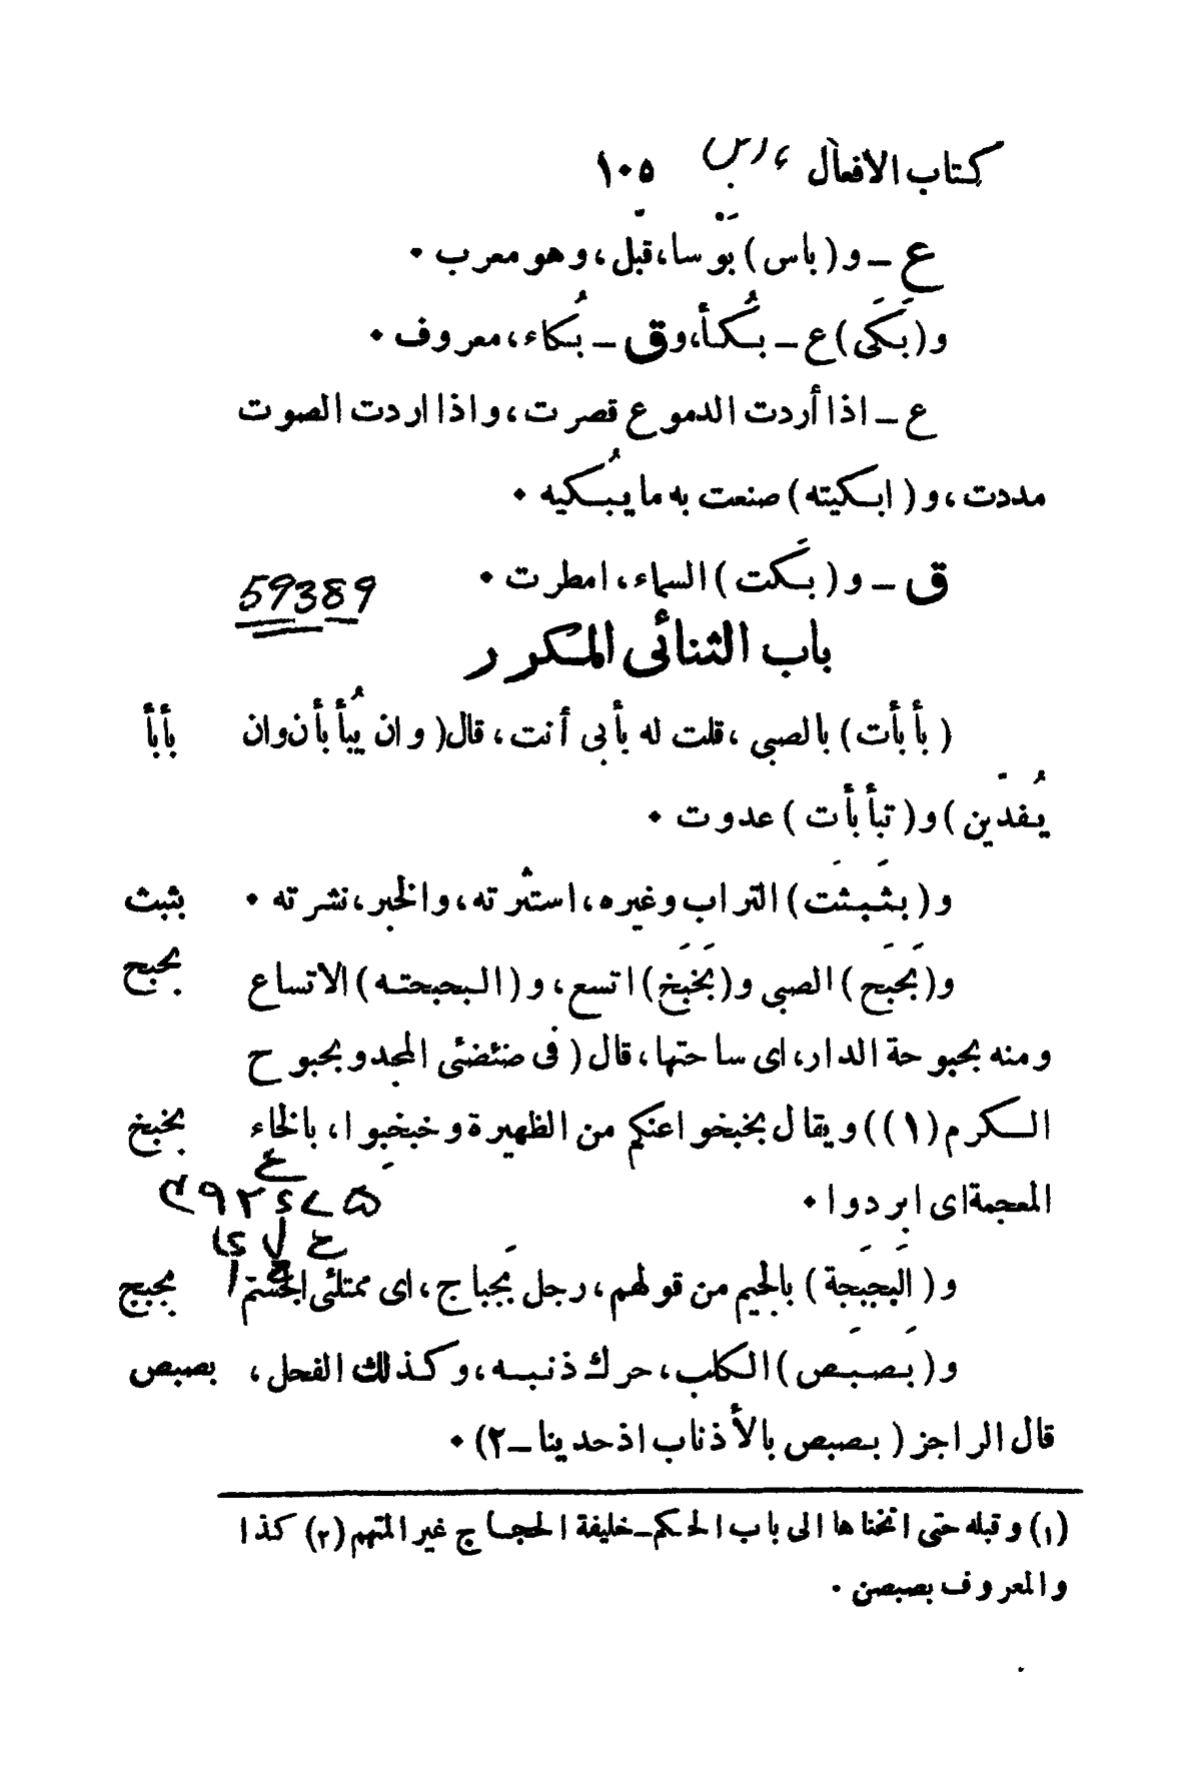 كتاب الافعال ١٠٥
ع ــ و (باس) بَوْسا، قبّل، وهو معرب ٠
و (بَكَى) ع ــ بُكأ، وق ــ بُكاء، معروف ٠
ع ــ اذا أردت الدموع قصرت، واذا اردت الصوت
مددت، و (ابكيته) صنعت به ما يُبكيه ٠
ق ــ و (بَكت) السماء، امطرت ٠
59389
باب الثنائى المكرر
(بأبأت) بالصبى، قلت له بأبى أنت، قال (وان يُبأبأن وان
بأبأ
يُفدّين) و (تبأبأت) عدوت ٠
و (بثَبثَت) التراب وغيره، استثرته، والخبر، نشرته ٠
بثبث
و (بَحبَح) الصبى و (بَخبَخ) اتسع، و (البحبحته) الاتساع
بحبح
ومنه بحبوحة الدار، اى ساحتها، قال (فى ضئضئى المجد وبحبوح
الكرم (١)) ويقال بخبخوا عنكم من الظهيرة وخبخبوا، بالخاء
بخبخ
المعجمة اى ابردوا ٠
و (البَجبَجة) بالجيم من قولهم، رجل بَجباج، اى ممتلئى
بجبج
و (بَصبَص) الكلب، حرك ذنبه، وكذلك الفحل،
بصبص
قال الراجز (بصبص بالأذناب اذحدينا ــ ٢) ٠
(١) وقبله حتى انخناها الى باب الحكم ــ خليفة الحجاج غير المتهم (٢) كذا
والمعروف بصبصن ٠